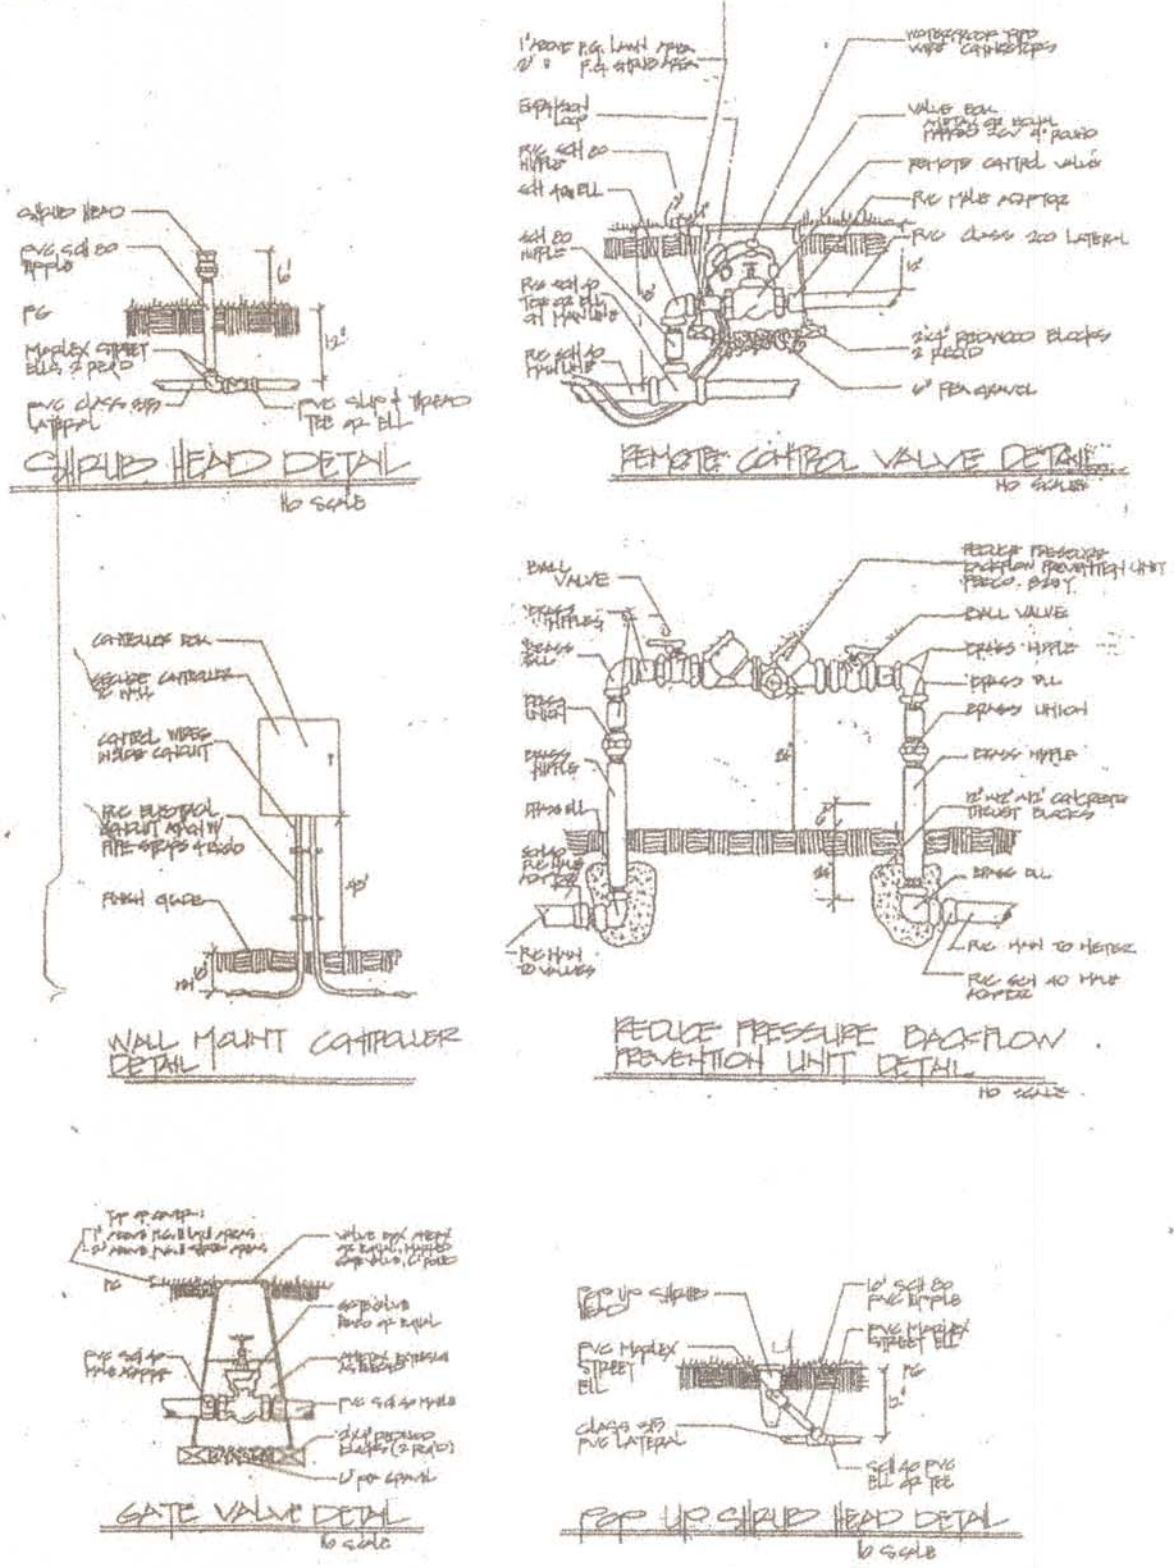 SHRUB HEAD
PVC SCH 80
NIPPLE
6"
PG
12"
MARLEX STREET
ELLS 2 REQ'D
PVC CLASS 315
LATERAL
PVC SLIP & THREAD
TEE OR ELL
SHRUB HEAD DETAIL
NO SCALE
1" ABOVE F.G. LAWN AREA
2" " F.G. SHRUB AREA
EXPANSION
LOOP
PVC SCH 80
NIPPLE
SCH 40 ELL
SCH 80
NIPPLE
PVC SCH 40
TEE OR ELL
ON MAINLINE
PVC SCH 40
MAINLINE
WATERPROOF TYPE
WIRE CONNECTORS
VALVE BOX
REMOTE CONTROL VALVE
PVC MALE ADAPTOR
PVC CLASS 200 LATERAL
12"
2"x4" REDWOOD BLOCKS
2 REQ'D
6" PEA GRAVEL
REMOTE CONTROL VALVE DETAIL
NO SCALE
CONTROLLER BOX
SECURE CONTROLLER
TO WALL
CONTROL WIRES
INSIDE CONDUIT
PVC ELECTRICAL
CONDUIT
PIPE STRAPS 4 REQ'D
FINISH GRADE
WALL MOUNT CONTROLLER
DETAIL
BALL
VALVE
BRASS
NIPPLES
BRASS
ELL
BRASS
UNION
BRASS
NIPPLE
BRASS ELL
SCH 40
PVC MALE
ADAPTOR
PVC MAIN
TO VALVES
REDUCE PRESSURE
BACKFLOW PREVENTION UNIT
FEBCO 825Y
BALL VALVE
BRASS NIPPLE
BRASS ELL
BRASS UNION
BRASS NIPPLE
12"x12"x12" CONCRETE
THRUST BLOCKS
BRASS ELL
PVC MAIN TO METER
PVC SCH 40 MALE
ADAPTOR
REDUCE PRESSURE BACKFLOW
PREVENTION UNIT DETAIL
NO SCALE
TOP OF COVER:
1" ABOVE F.G. LAWN AREAS
2" ABOVE F.G. SHRUB AREAS
FG
PVC SCH 40
MALE ADAPTOR
VALVE BOX AMETEK
OR EQUAL, MARKED
GATE VALVE
OR EQUAL
PVC SCH 40 MAINLINE
2x4 REDWOOD
BLOCKS (2 REQ'D)
6" PEA GRAVEL
GATE VALVE DETAIL
NO SCALE
POP UP SHRUB
HEAD
PVC MARLEX
STREET
ELL
CLASS 315
PVC LATERAL
SCH 80
PVC NIPPLE
PVC MARLEX
STREET ELL
FG
12"
SCH 40 PVC
ELL OR TEE
POP UP SHRUB HEAD DETAIL
NO SCALE